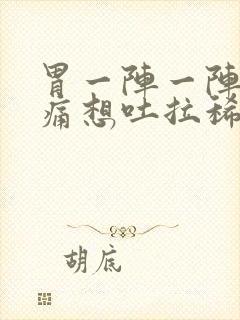 胃一陣一陣
痛想吐拉稀
胡底